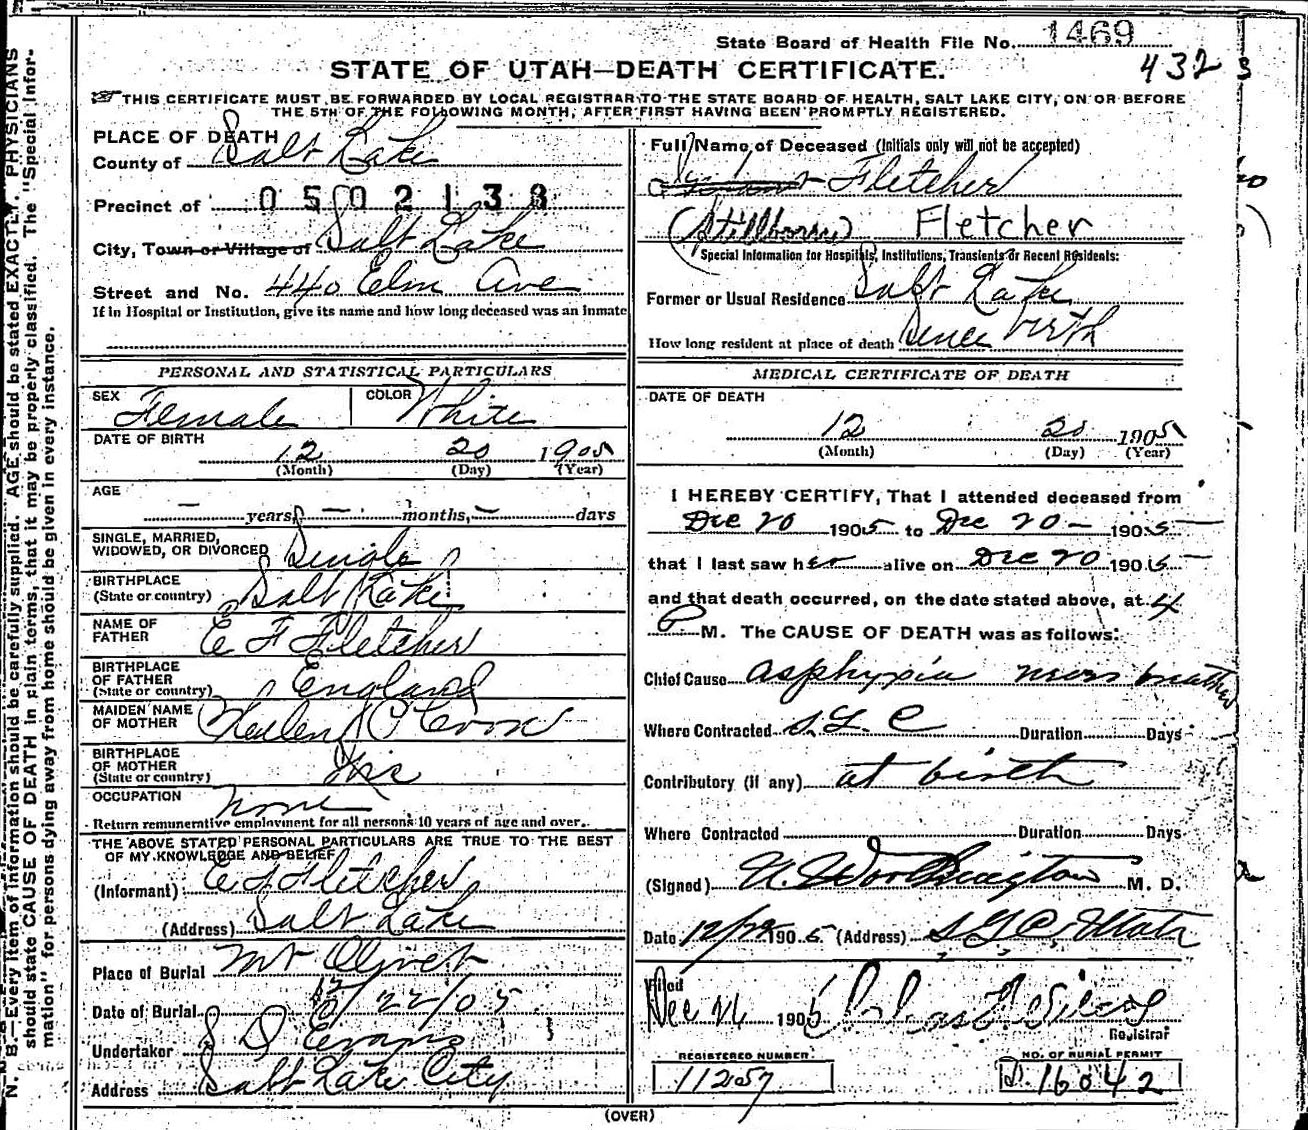 State Board of Health File No. 1469
432 3
STATE OF UTAH—DEATH CERTIFICATE.
THIS CERTIFICATE MUST BE FORWARDED BY LOCAL REGISTRAR TO THE STATE BOARD OF HEALTH, SALT LAKE CITY, ON OR BEFORE
THE 5TH OF THE FOLLOWING MONTH, AFTER FIRST HAVING BEEN PROMPTLY REGISTERED.
N. B.—Every item of information should be carefully supplied. AGE should be stated EXACTLY. PHYSICIANS
should state CAUSE OF DEATH in plain terms, that it may be properly classified. The "Special Infor-
mation" for persons dying away from home should be given in every instance.
PLACE OF DEATH
County of Salt Lake
Precinct of 0502138
City, Town or Village of Salt Lake
Street and No. 440 Elm Ave
If in Hospital or Institution, give its name and how long deceased was an inmate
PERSONAL AND STATISTICAL PARTICULARS
SEX Female COLOR White
DATE OF BIRTH
12 20 1905
(Month) (Day) (Year)
AGE
— years, — months, — days
SINGLE, MARRIED,
WIDOWED, OR DIVORCED Single
BIRTHPLACE
(State or country) Salt Lake
NAME OF
FATHER E F Fletcher
BIRTHPLACE
OF FATHER
(State or country) England
MAIDEN NAME
OF MOTHER
BIRTHPLACE
OF MOTHER
(State or country)
OCCUPATION None
Return remunerative employment for all persons 10 years of age and over.
THE ABOVE STATED PERSONAL PARTICULARS ARE TRUE TO THE BEST
OF MY KNOWLEDGE AND BELIEF
(Informant) E F Fletcher
(Address) Salt Lake
Place of Burial Mt Olivet
Date of Burial 12/22/05
Undertaker S D Evans
Address Salt Lake City
Full Name of Deceased (Initials only will not be accepted)
Fletcher
(Stillborn) Fletcher
Special Information for Hospitals, Institutions, Transients or Recent Residents:
Former or Usual Residence Salt Lake
How long resident at place of death Since birth
MEDICAL CERTIFICATE OF DEATH
DATE OF DEATH
12 20 1905
(Month) (Day) (Year)
I HEREBY CERTIFY, That I attended deceased from
Dec 20 1905 to Dec 20 — 1905
that I last saw her alive on Dec 20 1905
and that death occurred, on the date stated above, at 4
P M. The CAUSE OF DEATH was as follows:
Chief Cause asphyxia never
Where Contracted S. L. C Duration Days
Contributory (if any) at birth
Where Contracted Duration Days
(Signed) Worthington M. D.
Date 12/22 1905 (Address) S. L. C. Utah
Filed
Dec 1905
Registrar
REGISTERED NUMBER
11257
NO. OF BURIAL PERMIT
D. 16042
(OVER)